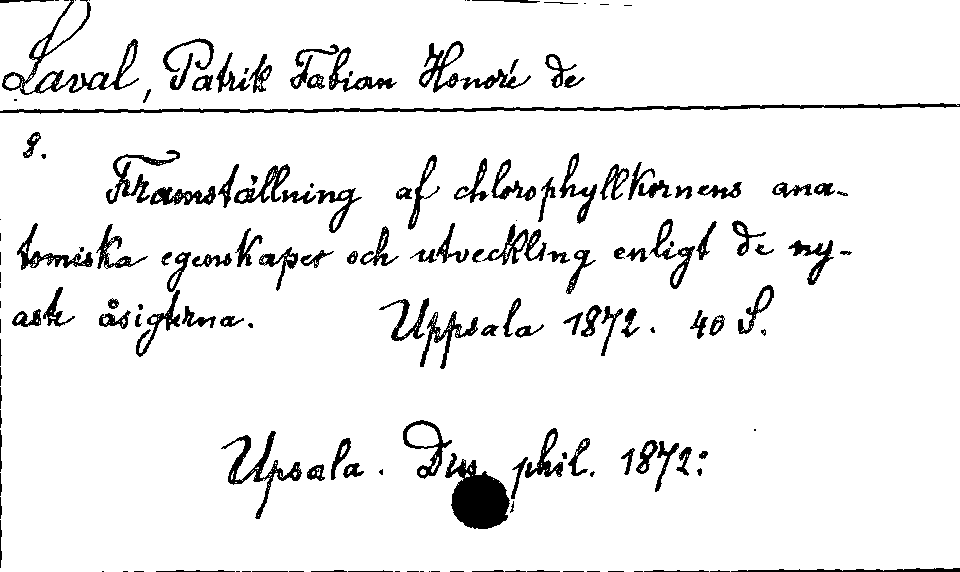 Laval, Patrik Fabian Honoré de
8.
Framställning af chlorophyllkornens ana-
tomiska egenskaper och utveckling enligt de ny-
aste åsigterna. Uppsala 1872. 40 S.
Upsala. Diss. phil. 1872: